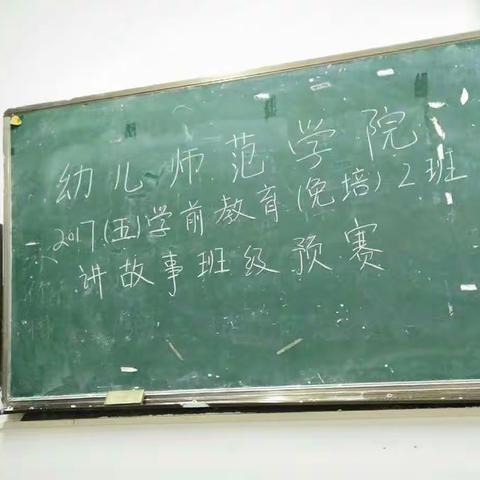 幼儿师范学院
2017(五)学前教育(免培)2班
讲故事班级预赛